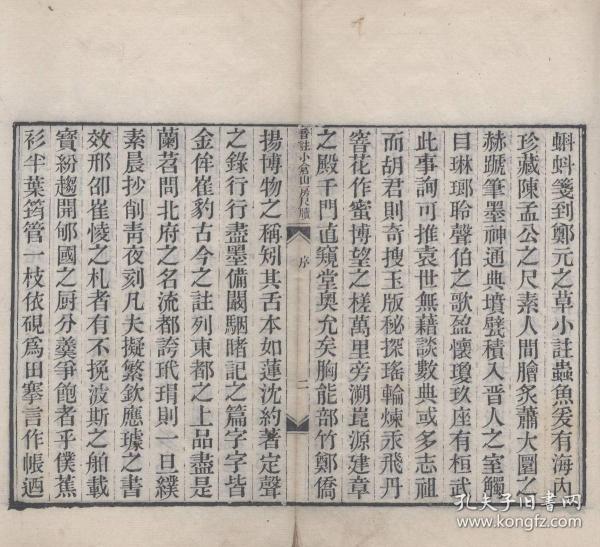 蝌蚪箋到鄭元之草小註蟲魚爰有海內
珍藏陳孟公之尺素人間膾炙蕭大圜之
赫蹏筆墨神通典墳襞積入晉人之室觸
目琳瑯聆聲伯之歌盈懷瓊玖座有桓武
此事詢可推袁世無藉談數典或多志祖
而胡君則奇搜玉版秘探瑤輪煉汞飛丹
窨花作蜜博望之槎萬里旁溯崑源建章
之殿千門直窺堂奧允矣胸能部竹鄭僑
音註小倉山房尺牘
序
二
揚博物之稱矧其舌本如蓮沈約著定聲
之錄行行盡墨備闞駰睹記之篇字字皆
金侔崔豹古今之註列東都之上品盡是
蘭苕問北府之名流都誇玳瑁則一旦
素晨抄削青夜刻凡夫擬繁欽應璩之書
效邢卲崔㥄之札者有不挽波斯之舶載
寶紛趨開郇國之厨分羹爭飽者乎僕蕉
衫半葉筠管一枝依硯爲田搴言作帳迺
孔夫子旧书网
www.kongfz.com